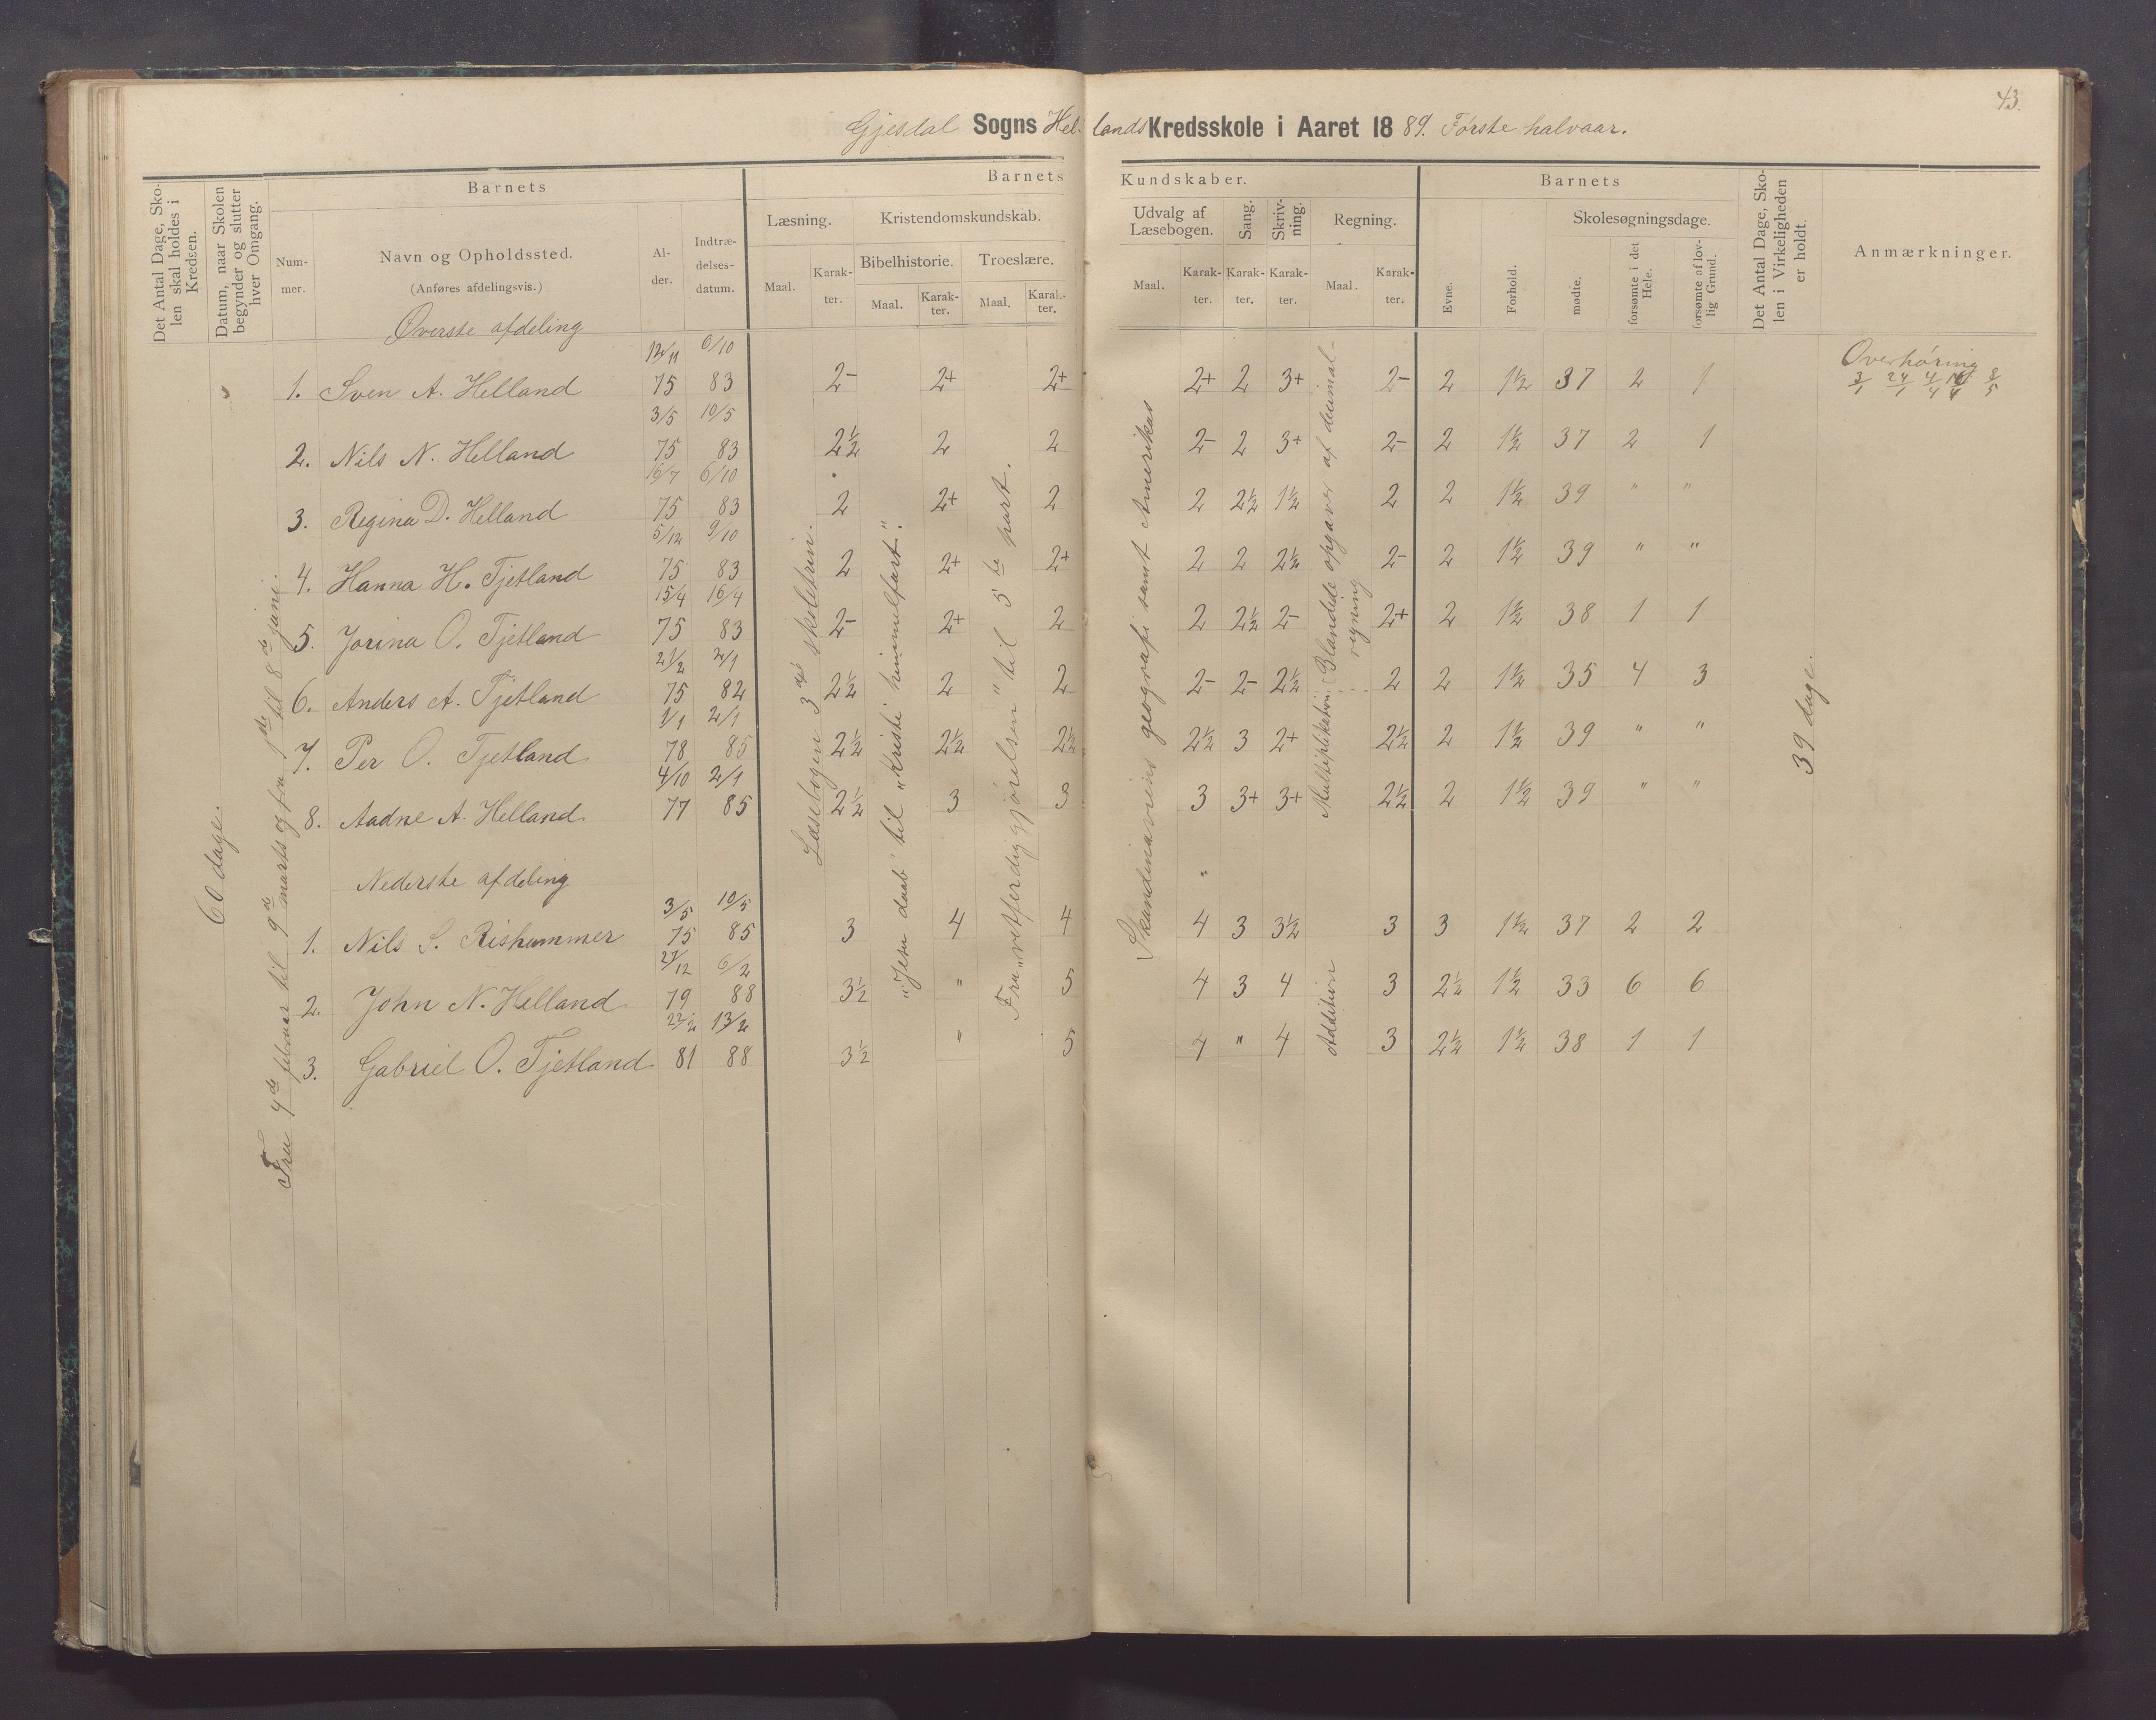 43.
Gjesdal Sogns Hellands Kredsskole i Aaret 1889. Første halvaar.
Det Antal Dage, Skolen skal holdes i Kredsen.
Datum, naar Skolen begynder og slutter hver Omgang.
Barnets
Nummer.
Navn og Opholdssted.
(Anføres afdelingsvis.)
Alder.
Indtrædelsesdatum.
Barnets Kundskaber.
Læsning.
Maal.
Karakter.
Kristendomskundskab.
Bibelhistorie.
Maal.
Karakter.
Troeslære.
Maal.
Karakter.
Udvalg af Læsebogen.
Maal.
Karakter.
Sang.
Karakter.
Skrivning.
Karakter.
Regning.
Maal.
Karakter.
Barnets
Evne.
Forhold.
Skolesøgningsdage.
mødte.
forsømte i det Hele.
forsømte af lovlig Grund.
Det Antal Dage, Skolen i Virkeligheden er holdt.
Anmærkninger.
60 dage.
Fra 4de februar til 9de marts og fra 1ste til 8de juni.
Læsebogen 3die skoletrin.
"Jesu daab" til "Kristi himmelfart".
Fra "retferdiggjørelsen" til 5te part.
Skandinaviens geografi samt Amerikas
Multiplikation. Blandede opgaver af decimalregning
Addition
39 dage.
Overhøring
Øverste afdeling
12/11 6/10
1. Sven A. Helland 75 83 2- 2+ 2+ 2+ 2 3+ 2- 2 1½ 37 2 1
3/5 10/5
2. Nils N. Helland 75 83 2½ 2 2 2- 2 3+ 2- 2 1½ 37 2 1
16/7 6/10
3. Regina D. Helland 75 83 2 2+ 2 2 2½ 1½ 2 2 1½ 39 " "
5/12 9/10
4. Hanna H. Tjetland 75 83 2 2+ 2+ 2 2 2½ 2- 2 1½ 39 " "
15/4 16/4
5. Jorina O. Tjetland 75 83 2- 2+ 2 2 2½ 2- 2+ 2 1½ 38 1 1
21/2 2/1
6. Anders A. Tjetland 75 82 2½ 2 2 2- 2- 2½ 2 2 1½ 35 4 3
1/1 2/1
7. Per O. Tjetland 78 85 2½ 2½ 2½ 2½ 3 2+ 2½ 2 1½ 39 " "
4/10 2/1
8. Aadne A. Helland 77 85 2½ 3 3 3 3+ 3+ 2½ 2 1½ 39 " "
Nederste afdeling
3/5 10/5
1. Nils S. Rishammer 75 85 3 4 4 4 3 3½ 3 3 1½ 37 2 2
27/12 6/2
2. John N. Helland 79 88 3½ " 5 4 3 4 3 2½ 1½ 33 6 6
22/2 13/2
3. Gabriel O. Tjetland 81 88 3½ " 5 4 " 4 3 2½ 1½ 38 1 1